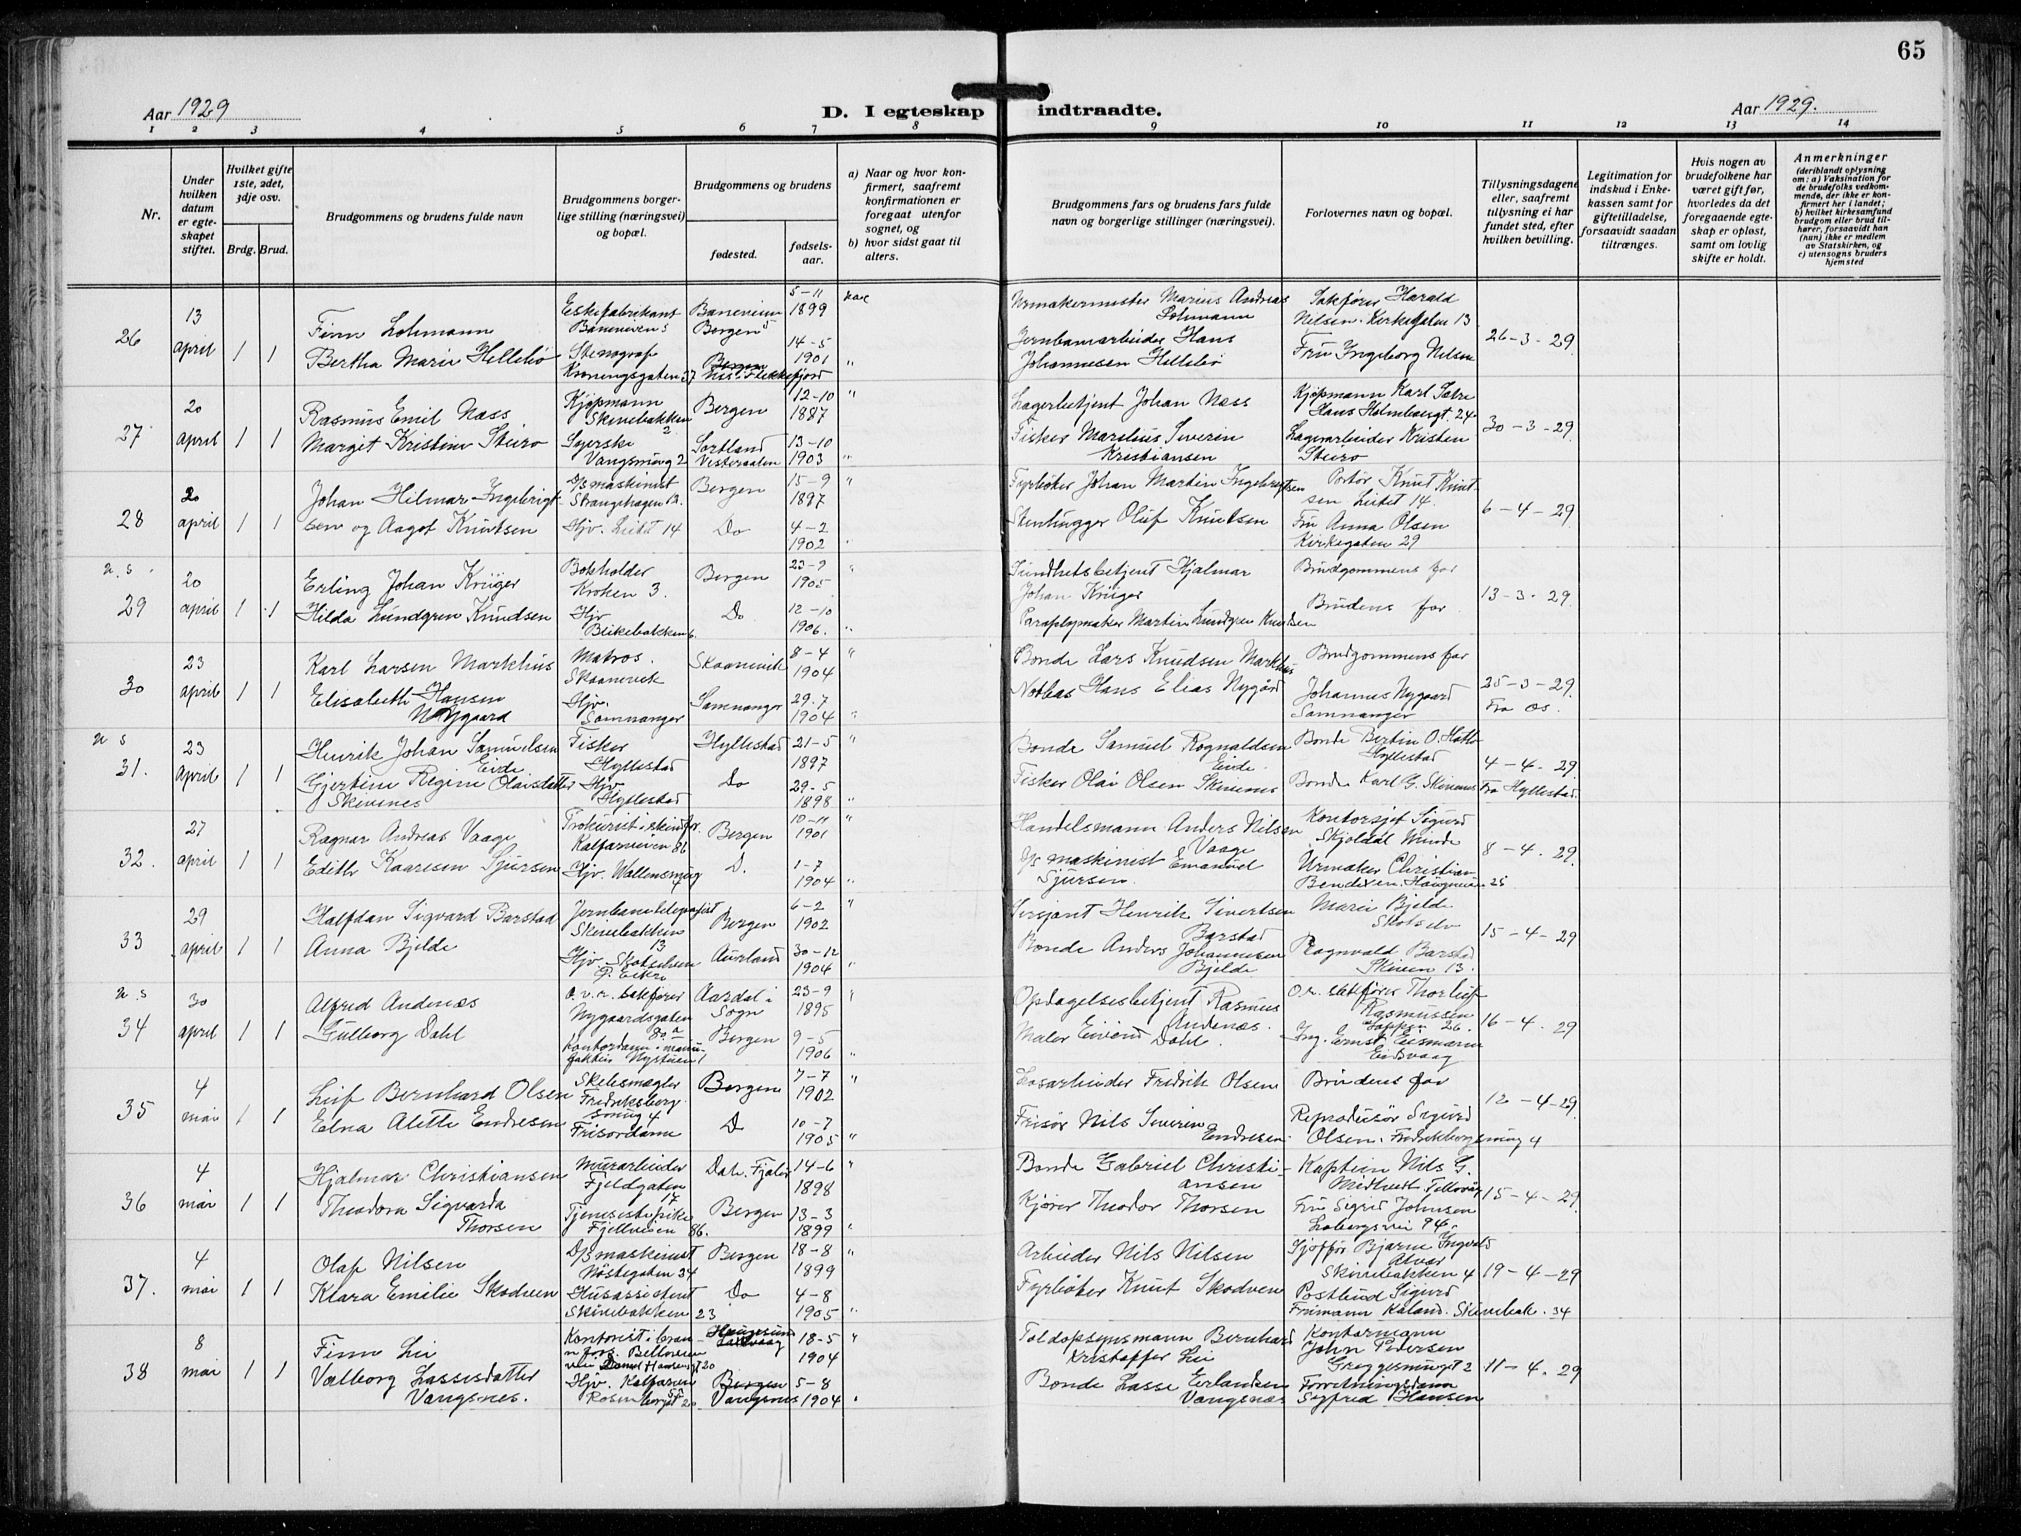 65
Aar 1929
D. I egteskap indtraadte.
Aar 1929.
1 2 3 4 5 6 7 8 9 10 11 12 13 14
Nr.
Under hvilken datum er egte-skapet stiftet.
Hvilket gifte 1ste, 2det, 3dje osv.
Brdg. Brud.
Brudgommens og brudens fulde navn
Brudgommens borger-lige stilling (næringsvei) og bopæl.
Brudgommens og brudens
fødested.
fødsels-aar.
a) Naar og hvor kon-firmert, saafremt konfirmationen er foregaat utenfor sognet, og
b) hvor sidst gaat til alters.
Brudgommens fars og brudens fars fulde navn og borgerlige stillinger (næringsvei).
Forlovernes navn og bopæl.
Tillysningsdagene eller, saafremt tillysning ei har fundet sted, efter hvilken bevilling.
Legitimation for indskud i Enke-kassen samt for giftetilladelse, forsaavidt saadan tiltrænges.
Hvis nogen av brudefolkene har været gift før, hvorledes da det foregaaende egte-skap er opløst, samt om lovlig skifte er holdt.
Anmerkninger
(deriblandt oplysning om: a) Vaksination for de brudefolks vedkom-mende, der ikke er kon-firmert her i landet; b) hvilket kirkesamfund brudgom eller brud til-hører, forsaavidt han (hun) ikke er medlem av Statskirken, og c) utensogns bruders hjemsted
26 13 april 1 1
Finn Lohmann
Bertha Marie Hellebø
Eskefabrikant
Baneveien 5
Stenograf
Kroningsgaten 37
Baneveien 5
Bergen
Bergen
Flekkefjord
5-11
1899
14-5
1901
Urmakermester Marius Andreas
Lohmann
Jernbanearbeider Hans
Johannesen Hellebø
Sakfører Harald
Nilsen. Kirkegaten 13
Fru Ingeborg Nilsen
26-3-29
27 20 april 1 1
Rasmus Emil Næss
Marget Kristine Steiro
Kjøpmann
Skivebakken 2
Syerske
Vangsmug 2
Bergen
Sortland
Vesteraalen
12-10
1887
13-10
1903
Lagerbetjent Johan Næss
Fisker Marelius Severin
Kristiansen
Kjøpmann Karl Sætre
Hans Holmboesgt 24
Lagerarbeider Kristen
Steiro
30-3-29
28 20 april 1 1
Johan Hilmar Ingebrigt-
sen og Aagot Knutsen
D/s maskinist
Stranghagen 13.
Hjv. Lidet 14
Bergen
Do
15-9
1897
4-2
1902
Fyrbøter Johan Martin Ingebrigtsen
Stenhugger Oluf Knutsen
Portør Knut Knut-
sen Lidet 14.
Fru Anna Olsen
Kirkegaten 29
6-4-29
n. s.
29 20 april 1 1
Erling Johan Krüger
Hilda Lundgren Knudsen
Bokholder
Kroken 3.
Hjv
Blekebakken 6.
Bergen
Do
23-9
1905
12-10
1906.
Sundhetsbetjent Hjalmar
Johan Krüger
Paraplymaker Martin Lundgren Knudsen
Brudgommens far
Brudens far
13-3-29
30 23 april 1 1
Karl Larsen Markhus
Elisabeth Hansen
Nygaard
Matros.
Skaanevik
Hjv.
Samnanger
Skaanevik
Samnanger
8-4
1904
29.7
1904
Bonde Lars Knudsen Markhus
Notbas Hans Elias Nygård
Brudgommens far
Johannes Nygaard
Samnanger
25-3-29.
Fra Os.
n s
31. 23 april 1 1
Henrik Johan Samuelsen
Eide
Gjertine Regine Olaisdatter
Skivenes
Fisker
Hyllestad
Hjv
Hyllestad
Hyllestad
Do
21-5
1897
29-5
1898
Bonde Samuel Rognaldsen
Eide
Fisker Olai Olsen Skivenes
Bonde Bertin O. Hatle
Hyllestad
Bonde Karl G. Skivenes
4-4-29
Fra Hyllestad.
32. 27 april 1 1
Ragnar Andreas Vaage
Edith Kaaresen Sjursen
Kalfarveien 86
Hjv. Wallensmug 4
Bergen
D.
10-11
1901
1-7
1904
Handelsmann Anders Nilsen
Vaage
D/s maskinist Emanuel
Sjursen.
Kontorsjef Sigurd
Skjoldal Minde
Urmaker Christian
Bendixen. Haugeveien 25
8-4-29
33 29 april 1 1
Halfdan Sigvard Barstad
Anna Bjelde
Jernbanetelegrafist
Skivebakken 13
Hjv Skotselven
Ø. Eiker
Bergen
Aurland
6-2
1902
30-12
1904
Sersjant Henrik Sivertsen
Barstad
Bonde Anders Johannesen
Bjelde
Marie Bjelde
Skotselv
Ragnvald Barstad
Skiveb 13.
15-4-29
n. s
34 30 april 1 1
Alfred Andenæs
Gulborg Dahl
o. r. sakfører
Nygaardsgaten
80 a
Kontordame i manu-
faktur Nystuen 1
Aardal i
Sogn
Bergen
23-9
1895
9-5
1906
Opdagelsesbetjent Rasmus
Andenæs.
Maler Eivind Dahl.
O.r. sakfører Thorleif
Rasmussen
Toppen 26.
Ing. Ernst Eismann
Eidsvaag
16-4-29
35 4 mai 1 1
Leif Bernhard Olsen
Edna Alette Endresen
Skibsmægler
Fredriksberg
smug 4
Frisørdame
Bergen
D
7-7
1902
10-7
1905
Løsarbeider Fredrik Olsen
Frisør Nils Severin
Endresen
Brudens far
Reprodusør Sigurd
Olsen. Fredriksbergsmug 4
12-4-29
36 4 mai 1 1
Hjalmar Christiansen
Theodora Sigvarda
Thorsen
Murarbeider
Fjeldgaten
17
Tjenestepike
Fjellveien 86.
Dale. Fjaler
Bergen
14-6
1898
13-3
1899
Bonde Gabriel Christi-
ansen
Kjører Theodor Thorsen
Kaptein Nils G.
Midtvedt
Fru Sigrid Johnsen
Løbergsvei 94.
15-4-29
37. 4 mai 1 1
Olaf Nilsen
Klara Emilie Skodvin
D/s maskinist
Nøstegaten 34
Husassistent
Skivebakken 23
Bergen
Do
18-8
1899
4-8
1905
Arbeider Nils Nilsen
Fyrbøter Knut Skodven
Sjåfør Bjarne Ingvald
Alver
Skivebakken 4
Postbud Sigurd
Frimann Kaland. Skivebak. 34
19-4-29
38 8 mai 1 1
Finn Lie
Valborg Lassesdatter
Vangsnes.
Kontorist i bran-
Hjv. Kalfarvei
Rosenborgst 20
Haugesund
Bergen
Vangsnes
18-5
1904
5-8
1904
Toldopsynsmann Bernhard
Kristoffer Lie
Bonde Lasse Erlandsen
Vangsnes
Kontormann
John Pedersen
Forretningsdame
Sigfred Hansen
11-4-29